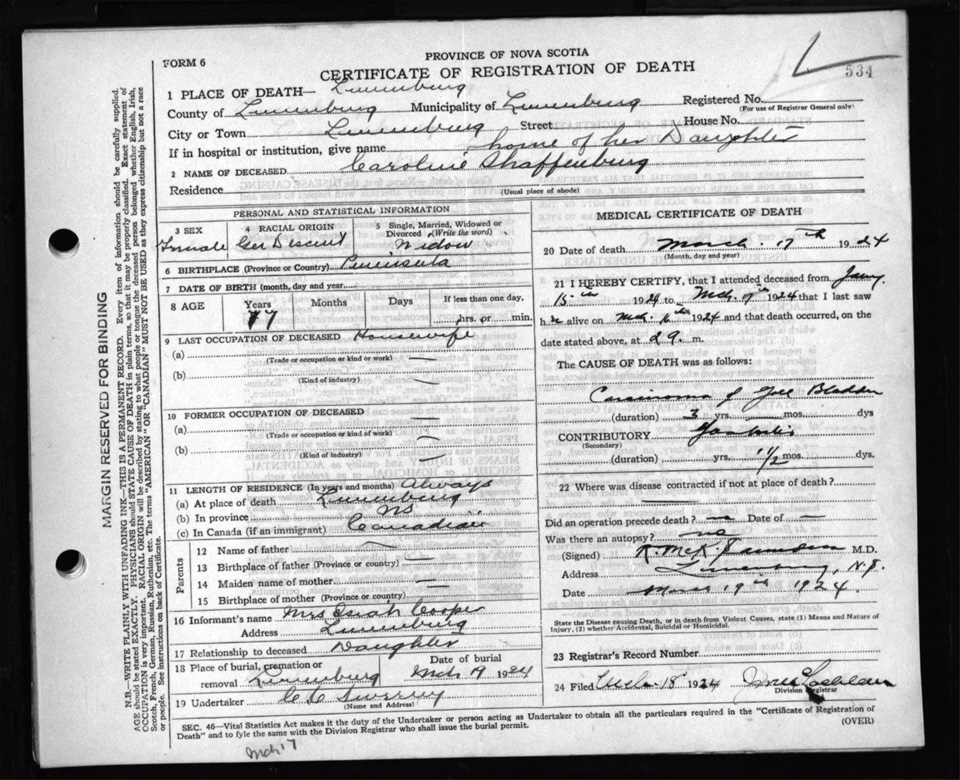 FORM 6
PROVINCE OF NOVA SCOTIA
CERTIFICATE OF REGISTRATION OF DEATH
534
1 PLACE OF DEATH— Lunenburg
County of Lunenburg Municipality of Lunenburg Registered No.
(For use of Registrar General only)
City or Town Lunenburg Street House No.
If in hospital or institution, give name home of her Daughter
2 NAME OF DECEASED Caroline Shaffenburg
Residence
(Usual place of abode)
PERSONAL AND STATISTICAL INFORMATION
3 SEX 4 RACIAL ORIGIN 5 Single, Married, Widowed or Divorced (Write the word)
Female Ger Descent Widow
6 BIRTHPLACE (Province or Country) Peninsula
7 DATE OF BIRTH (month, day and year)
8 AGE Years Months Days If less than one day,
77 hrs. or min.
9 LAST OCCUPATION OF DECEASED Housewife
(a) —
(Trade or occupation or kind or work)
(b) —
(Kind of industry)
10 FORMER OCCUPATION OF DECEASED
(a) —
(Trade or occupation or kind of work)
(b) —
(Kind of industry)
11 LENGTH OF RESIDENCE (In years and months) Always
(a) At place of death Lunenburg
(b) In province NS
(c) In Canada (if an immigrant) Canadian
Parents
12 Name of father —
13 Birthplace of father (Province or country) —
14 Maiden name of mother —
15 Birthplace of mother (Province or country) —
16 Informant's name Mrs Isiah Cooper
Address Lunenburg
17 Relationship to deceased Daughter
18 Place of burial, cremation or removal Lunenburg Date of burial Mch 19 1924
19 Undertaker C C
(Name and Address)
MEDICAL CERTIFICATE OF DEATH
20 Date of death March 17th 1924
(Month, day and year)
21 I HEREBY CERTIFY, that I attended deceased from Jany
15th 1924 to 1924 that I last saw
h alive on 1924 and that death occurred, on
date stated above, at m.
The CAUSE OF DEATH was as follows:
Carcinoma of Gall Bladder
(duration) 3 yrs. — mos. dys
CONTRIBUTORY
(Secondary)
(duration) yrs. 1 1/2 mos. dys.
22 Where was disease contracted if not at place of death?
Did an operation precede death? no Date of —
Was there an autopsy? no
(Signed) M.D.
Address Lunenburg, N.S.
Date March 19th 1924.
State the Disease causing Death, or in death from Violent Causes, state (1) Means and Nature of Injury, (2) whether Accidental, Suicidal or Homicidal.
23 Registrar's Record Number
24 Filed Mch 18 1924
Division Registrar
SEC. 46—Vital Statistics Act makes it the duty of the Undertaker or person acting as Undertaker to obtain all the particulars required in the "Certificate of Registration of
Death" and to fyle the same with the Division Registrar who shall issue the burial permit. (OVER)
Mch 17
MARGIN RESERVED FOR BINDING
N.B.—WRITE PLAINLY WITH UNFADING INK—THIS IS A PERMANENT RECORD. Every item of information should be carefully supplied.
AGE should be stated EXACTLY. PHYSICIANS should STATE CAUSE OF DEATH in plain terms, so that it may be properly classified. Exact statement of
OCCUPATION is very important. RACIAL ORIGIN will be described by stating to what people or tongue the deceased person belonged whether English, Irish,
Scotch, French, German, Russian, Ruthenian, etc. The terms "AMERICAN" OR "CANADIAN" MUST NOT BE USED as they express citizenship but not a race
or people. See instructions on back of Certificate.